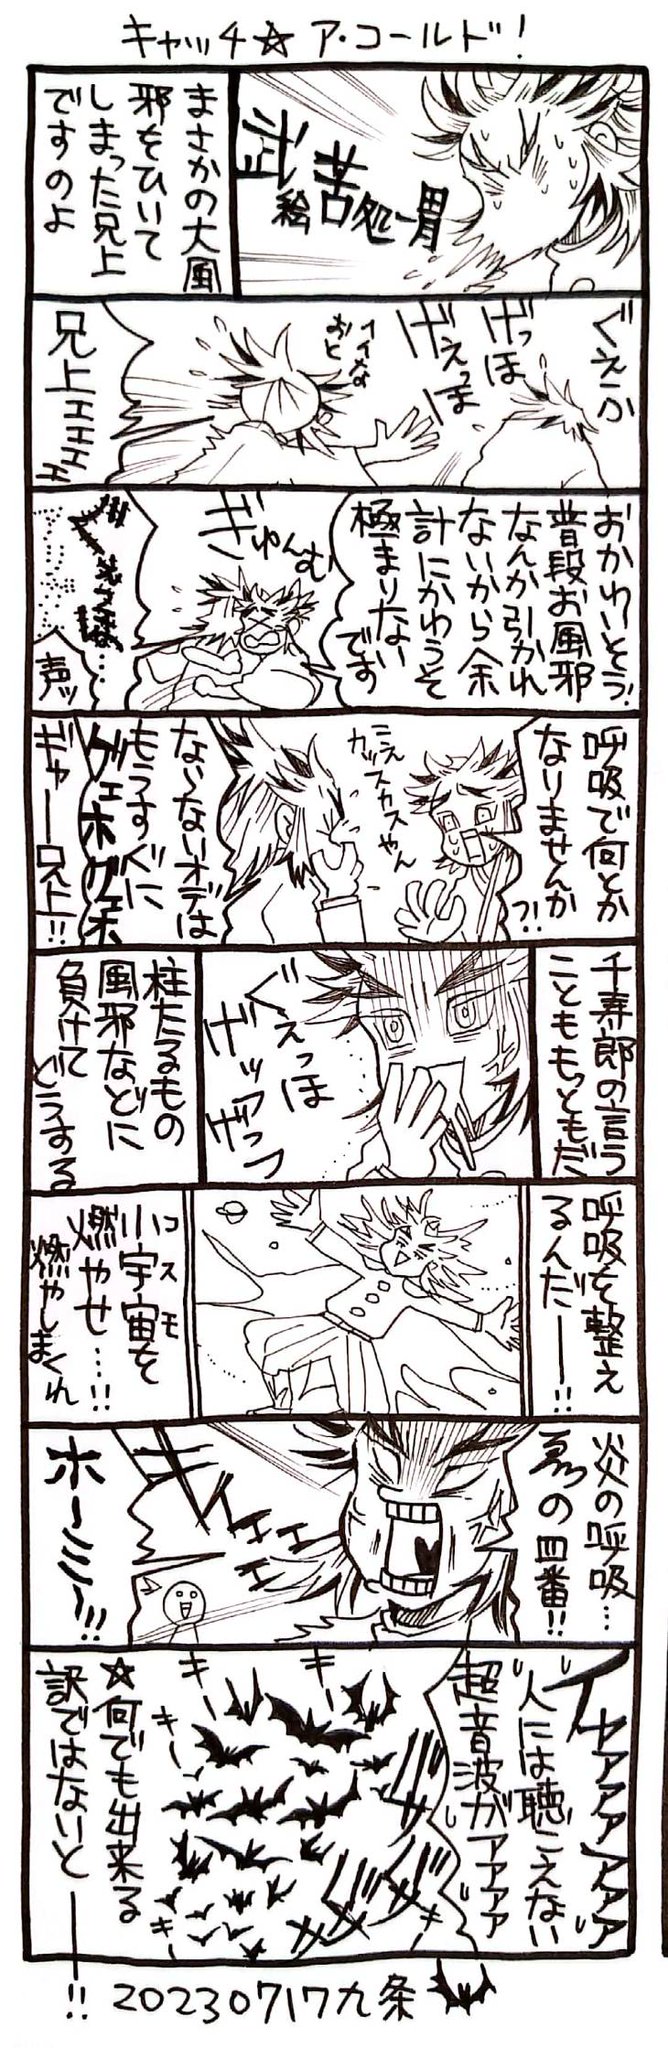 キャッチ☆ア・コールド！
武苦処一胃
絵
まさかの大風
邪をひいて
しまった兄上
ですのよ
ぐえーっ
げっほ
げえっほ
イイなおと
兄上ェェェェ
おかわいそう！
普段お風邪
なんか引かれ
ないから余
計にかわうそ
極まりない
です
ぎゅんむ
声ッ
呼吸で何とか
なりませんか
?!
こえ
カッスカスやん
ならないオデは
もうすぐに
ゲェホゲェホ
ギャー兄上!!
千寿郎の言う
ことももっともだ
ぐえっほ
げッッ
げっつ
柱たるもの
風邪などに
負けて
どうする
呼吸を整え
るんだーー!!
小宇宙を
コスモ
燃やせ…!!
燃やしまくれ
炎の呼吸…
の四番!!
キィエエエエ
ホーミー!!
イヤアアアアアア
人には聴こえない
超音波がアアアア
キー
キー
キー
キー
キー
☆何でも出来る
訳ではないとーー!!
20230717九条